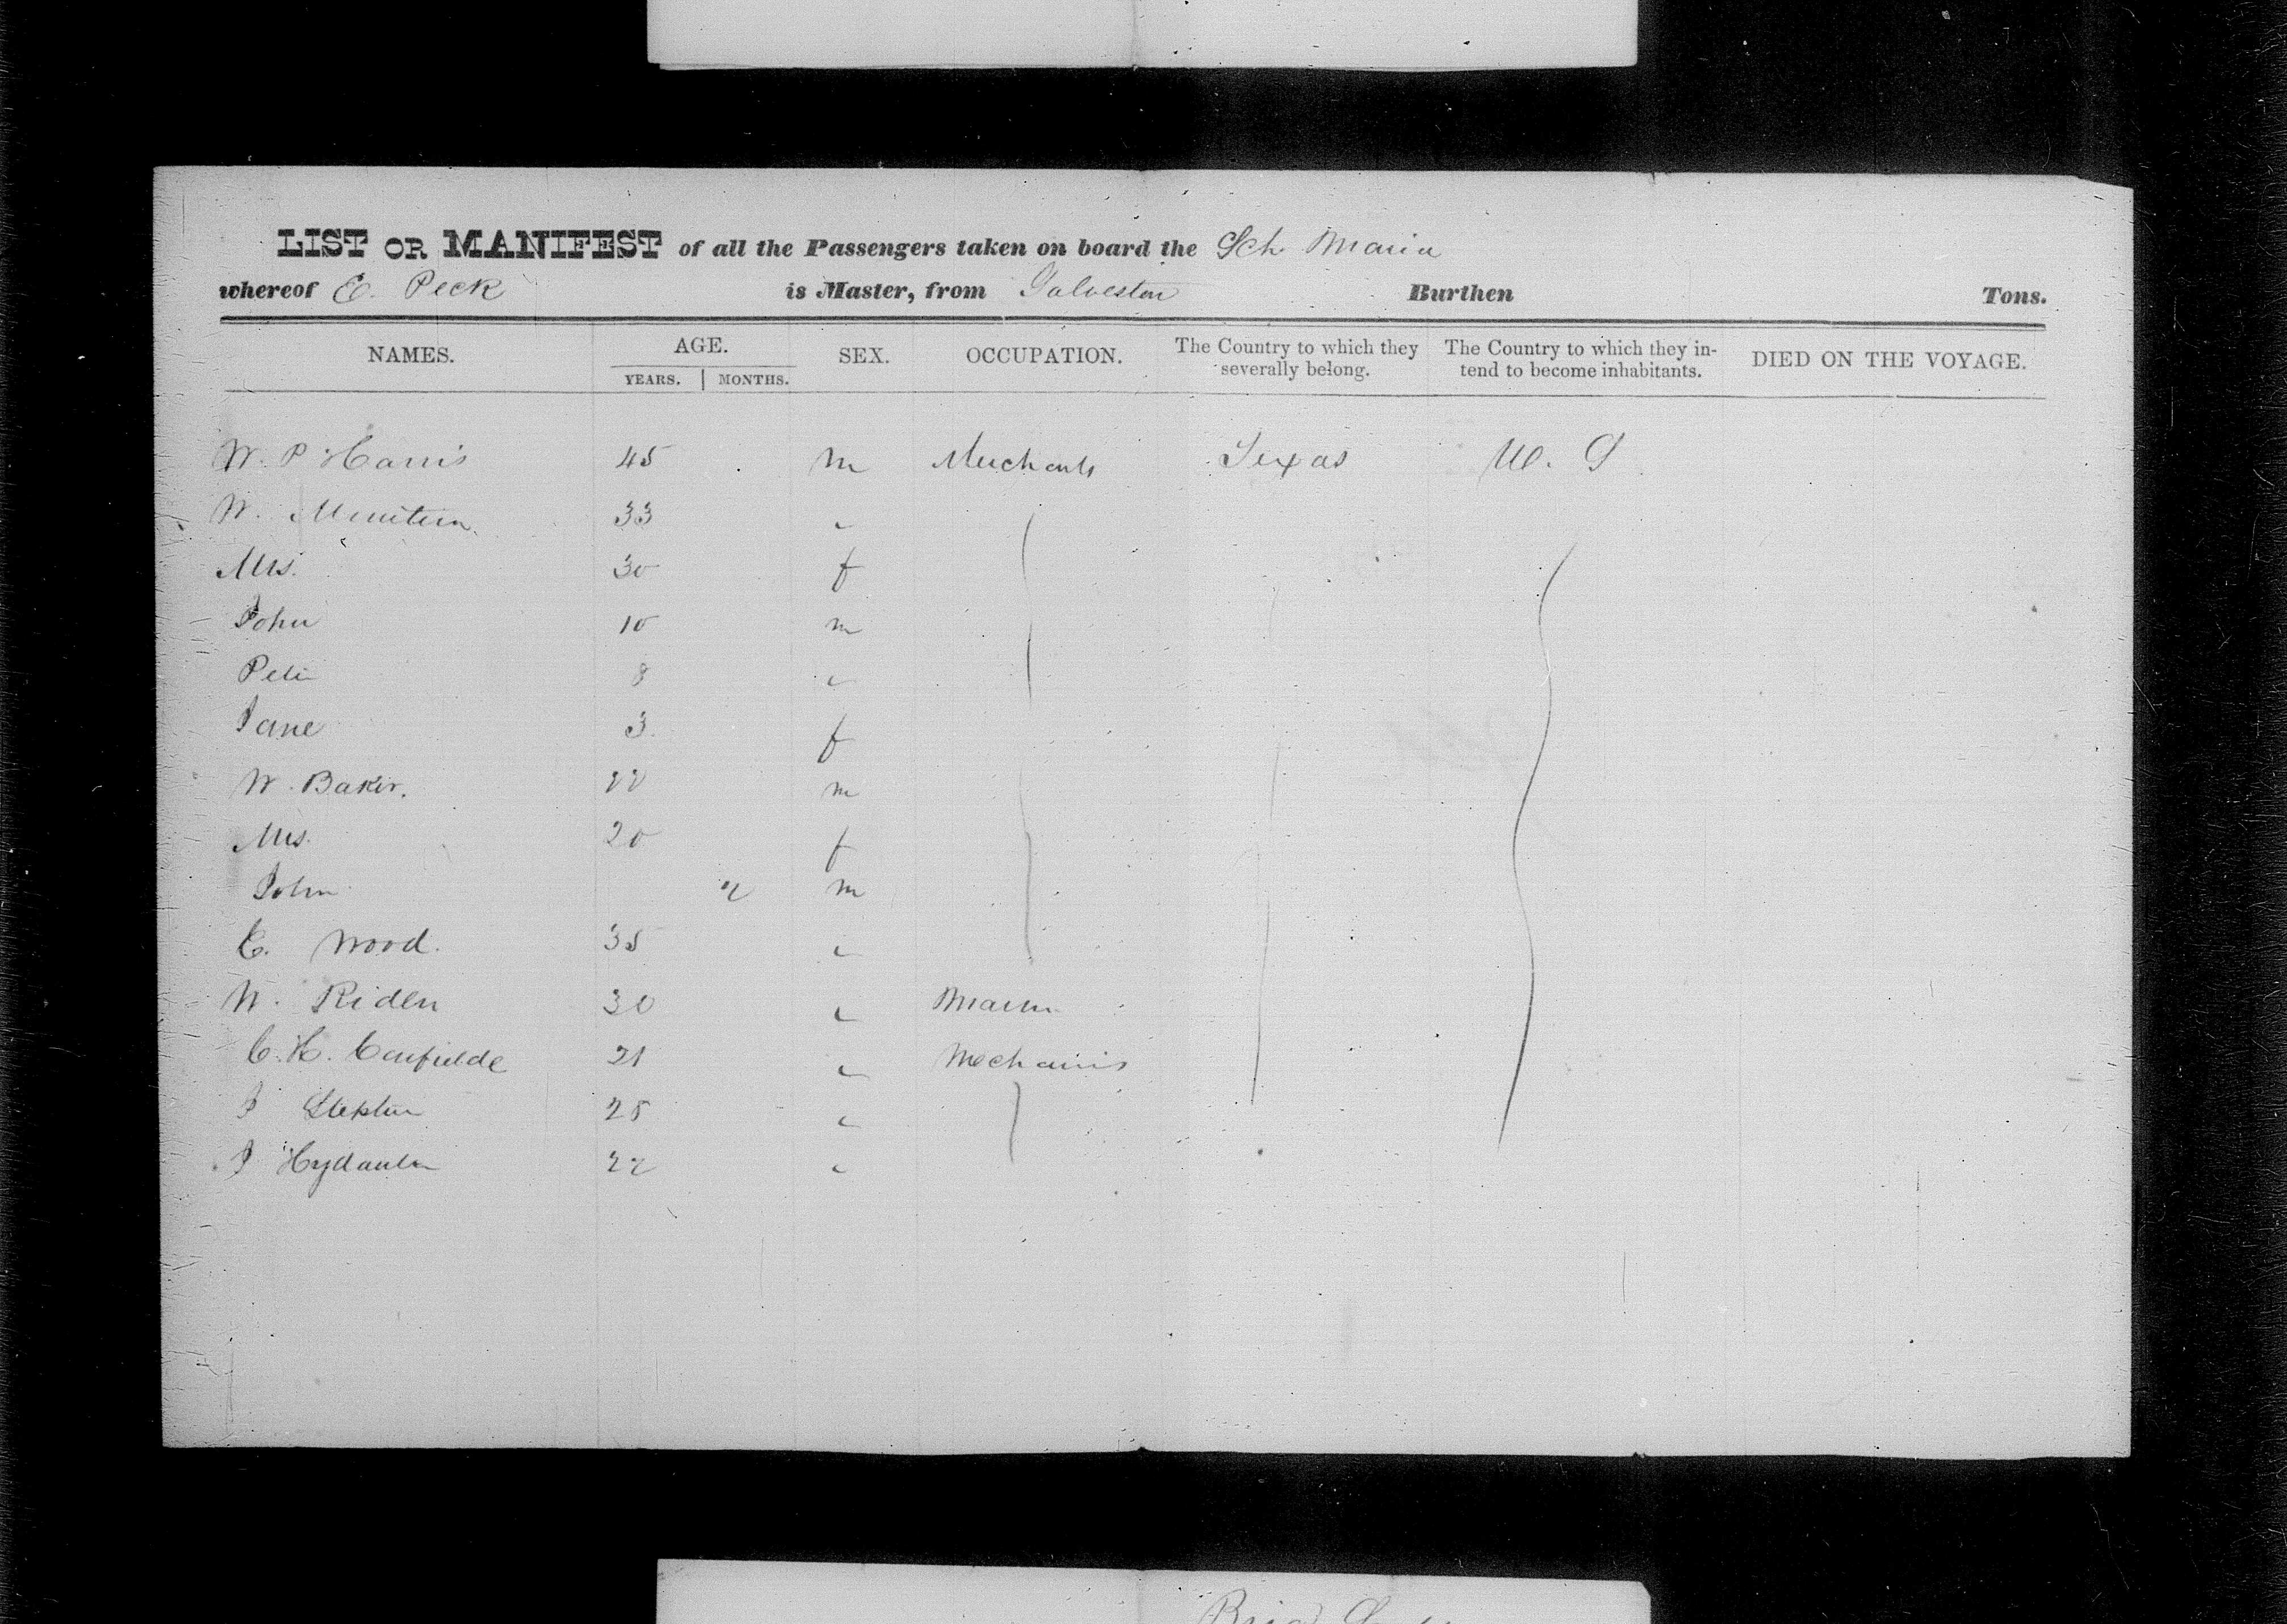 LIST OR MANIFEST of all the Passengers taken on board the Sch. Maria
whereof E. Peck is Master, from Galveston Burthen Tons.
NAMES. AGE. YEARS. MONTHS. SEX. OCCUPATION. The Country to which they severally belong. The Country to which they intend to become inhabitants. DIED ON THE VOYAGE.
W. P Harris 45 m Merchants Texas U. S
W. 33 "
Mrs. 30 f
John 10 m
Peter 8 "
Jane 3 f
W. Baker. 22 m
Mrs. 20 f
John 2 m
E. Wood. 35 "
W. Riden 30 "
C. H. 21 " Mechanics
J 25 "
J 22 "
Brig